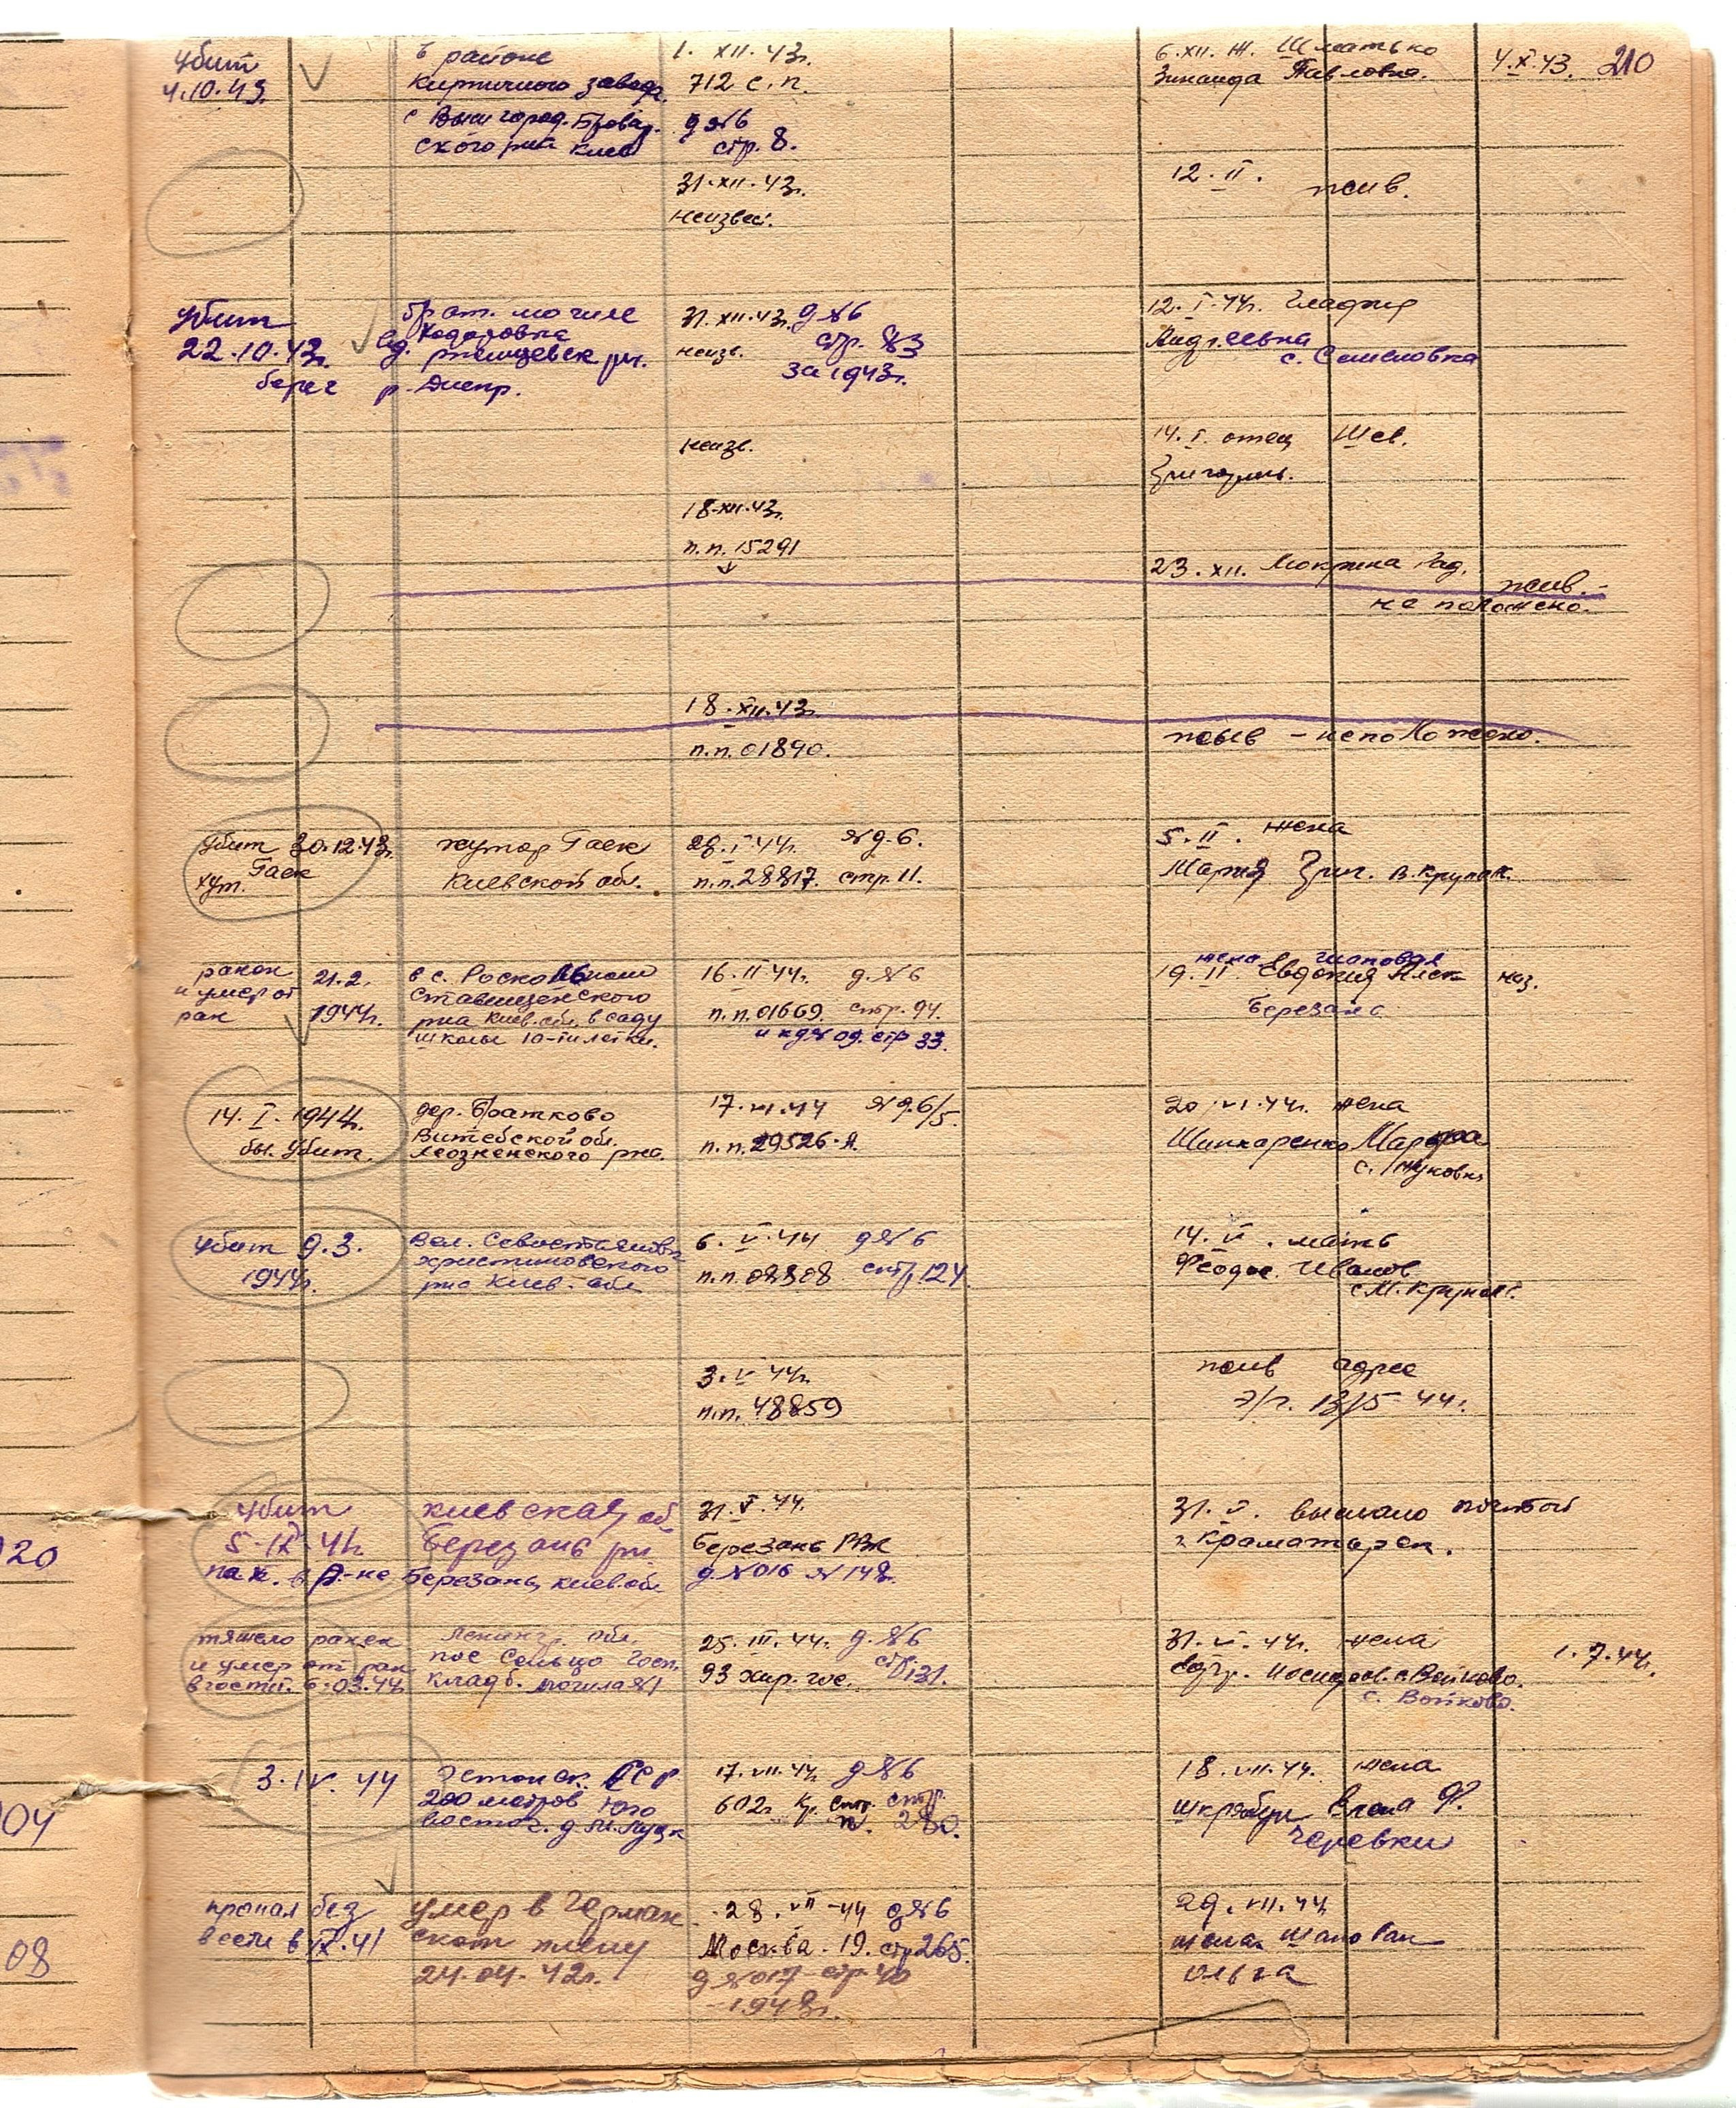 убит
4.10.43.
в районе
Кирпичного завода.
с Вышгород. Бровар.
ского р-на Киев
1. XII. 43г.
712 с. п.
д №6
стр. 8.
6. XII. Ж. Шматько
Зинаида Павловна.
4.X.43.
210
31. XII. 43г.
неизвес.
12. II. жив.
убит
22.10.43г.
берег р. Днепр.
брат. могиле
с. Ходоровка
Ржищевск р-н.
31. XII. 43г. д №6
неизв. стр. 83
за 1943г.
12. I. 44г. Гладкир
Андреевна
с. Семеновка
неизв.
14. I. отец Шев.
Григорьев.
18. XII. 43г.
п.п. 15291
23. XII. Мокрина Рад.
жив. –
не положено.
18. XII. 43г.
п.п. 01890.
жыв – неположено.
убит 30.12.43г.
хут. Гаек
хутор Гаек
Киевской обл.
28. I. 44г. №д. 6.
п.п. 28817. стр. 11.
5. II. жена
Мария Григ. В. Крупол.
ранен 21.2.
и умер от
ран 1944г.
в с. Роскошном
Ставищенского
р-на Киев. обл. в саду
школы 10-тилетки.
16. II 44г. д. №6
п.п. 01669. стр. 94.
и к д № 09. стр 33.
жена Шаповал
19. II. Евдокия Алек
Березань
14. I. 1944г.
бы. убит.
дер. Братково
Витебской обл.
Лиозненского р-на.
17. VI. 44 №д. 6/5.
п.п. 29526-Я.
20. VI. 44г. жена
Шинкаренко Марфа
с. Жуковка
убит 9.3.
1944г.
Вел. Севастьяновк
Христиновского
р-на Киев. обл
6. V. 44 д №6
п.п. 08808 стр. 124
14. VI. мать
Феодос. Иванов
с М. Крупол.
3. V 44г.
п.п. 48859
жив адрес
Э/г. 13/5 44г.
убит
5. IX. 41г.
пох. в р-не
Киевская об
Березань р-н
Березань, Киев. обл
31. V. 44.
Березань РВК
д. №016 №148.
31. V. выслано почтой
г. Краматорск.
тяжело ранен
и умер от ран
в госпит. 6.03.44
Ленингр. обл.
пос Сельцо Госп.
кладб. могила №1
25. III. 44г. д. №6
93 хир. гос. стр 131.
31. VI. 44г. жена
с. Войково.
с. Войково.
1.7.44г.
3. IV. 44
Эстонск. ССР
200 метров Юго
восточ. д.
17. VII. 44г. д №6
602г. Кр. Стр. стр.
п. 280.
18. VII. 44г. жена
Шкрябун Елена Ф.
Черевки
пропал без
вести в IX. 41
умер в Герман
ском плену
24.04.42г.
28. VII – 44 д №6
Москва. 19. стр 265.
д №017 стр. 40
– 1948г.
29. VII. 44
жена Шаповал
Ольга
20
04
08